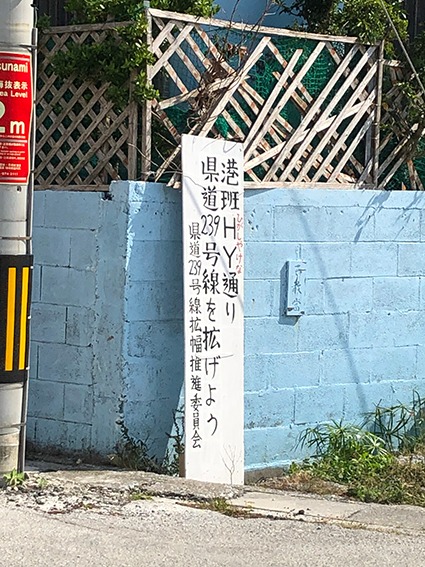 sunami
抜表示
ea Level
2m
港班HY通り
ひがしやけな
県道239号線を拡げよう
県道239号線拡幅推進委員会